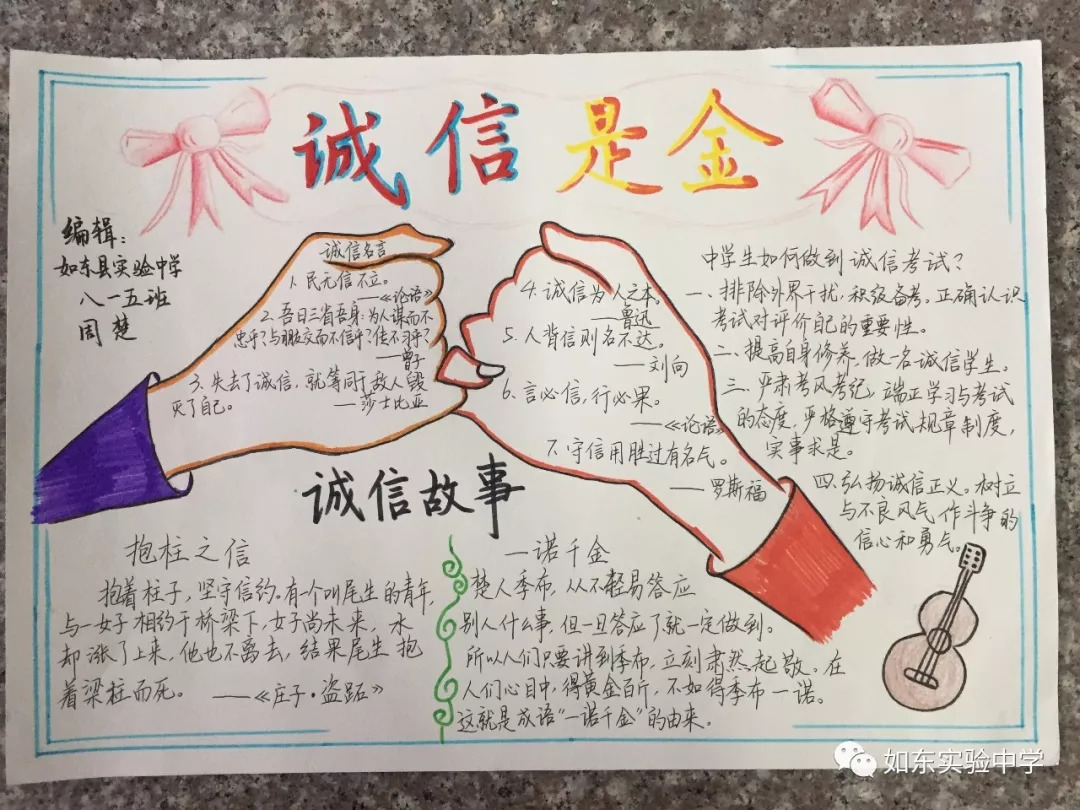 诚信是金
编辑:
如东县实验中学
八一五班
周楚
诚信名言
1. 民无信不立。
——《论语》
2. 吾日三省吾身:为人谋而不
忠乎?与朋友交而不信乎?传不习乎?
——曾子
3. 失去了诚信,就等同于敌人毁
灭了自己。
——莎士比亚
4. 诚信为人之本。
——鲁迅
5. 人背信则名不达。
——刘向
6. 言必信,行必果。
——《论语》
7. 守信用胜过有名气。
——罗斯福
中学生如何做到诚信考试?
一、排除外界干扰,积级备考。正确认识
考试对评价自己的重要性。
二、提高自身修养,做一名诚信学生。
三、严肃考风考纪,端正学习与考试
的态度,严格遵守考试规章制度,
实事求是。
四.弘扬诚信正义。树立
与不良风气作斗争的
信心和勇气。
诚信故事
抱柱之信
抱着柱子,坚守信约。有一个叫尾生的青年,
与一女子相约于桥梁下,女子尚未来,水
却涨了上来,他也不离去,结果尾生抱
着梁柱而死。——《庄子·盗跖》
一诺千金
楚人季布,从不轻易答应
别人什么事,但一旦答应了就一定做到。
所以人们只要讲到季布,立刻肃然起敬。在
人们心目中,得黄金百斤,不如得季布一诺。
这就是成语“一诺千金”的由来。
如东实验中学